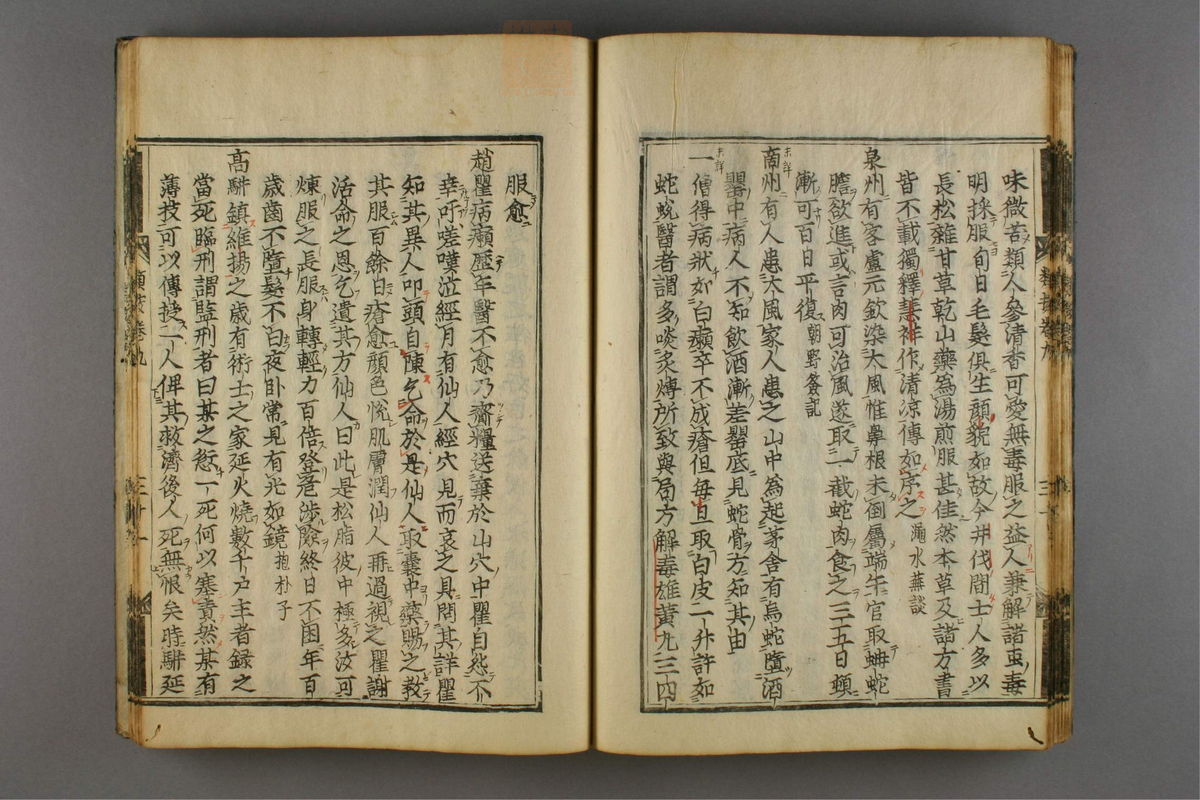 味微苦類人參清香可愛無毒服之益人兼解諸虫毒
明採服旬日毛髮俱生顏貌如故今并代間士人多以
長松雜甘草乾山藥爲湯煎服甚佳然本草及諸方書
皆不載獨釋慧祥作清涼傳如序之 澠水燕談
泉州有客盧元欽染大風惟鼻根未倒屬端午官取蚺蛇
膽欲進或言肉可治風遂取一截蛇肉食之三五日頓
漸可百日平復 朝野僉記
商州有人患大風家人患之山中爲起茅舍有烏蛇墮酒
未詳
罌中病人不知飲酒漸差罌底見蛇骨方知其由
一僧得病狀如白癩卒不成瘡但每旦取白皮二升許如
未詳
蛇蛻醫者謂多啖炙煿所致與局方解毒雄黄丸三四
類按卷九
三十一
服愈
趙瞿病癩歷年醫不愈乃齎糧送棄於山穴中瞿自怨不
幸吁嗟嘆泣經月有仙人經穴見而哀之具問其詳瞿
知其異人叩頭自陳乞命於是仙人取囊中藥賜之教
其服百餘日瘡愈顏色悅肌膚潤仙人再過視之瞿謝
活命之恩乞遺其方仙人曰此是松脂彼中極多汝可
煉服之長服身轉輕力百倍登危涉險終日不困年百
歲齒不墮髮不白夜卧常見有光如鏡 抱朴子
高駢鎮維揚之歲有術士之家延火燒數千户主者録之
當死臨刑謂監刑者曰某之愆一死何以塞責然某有
薄技可以傳授一人俾其救濟後人死無恨矣時駢延
類按卷九
三十一